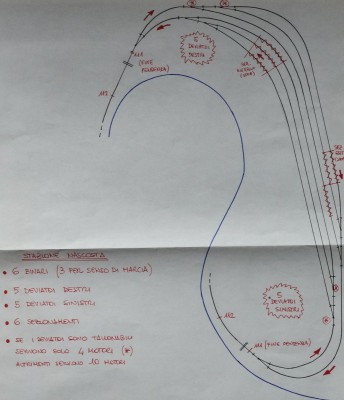 5
DEVIATOI
DESTRI
(FINE
PENDENZA)
113
5
DEVIATOI
SINISTRI
112
111 (FINE PENDENZA)
STAZIONE NASCOSTA
• 6 BINARI (3 PER SENSO DI MARCIA)
• 5 DEVIATOI DESTRI
• 5 DEVIATOI SINISTRI
• 6 SEZIONAMENTI
• SE I DEVIATOI SONO TALLONABILI
SERVONO SOLO 4 MOTORI (*)
ALTRIMENTI SERVONO 10 MOTORI